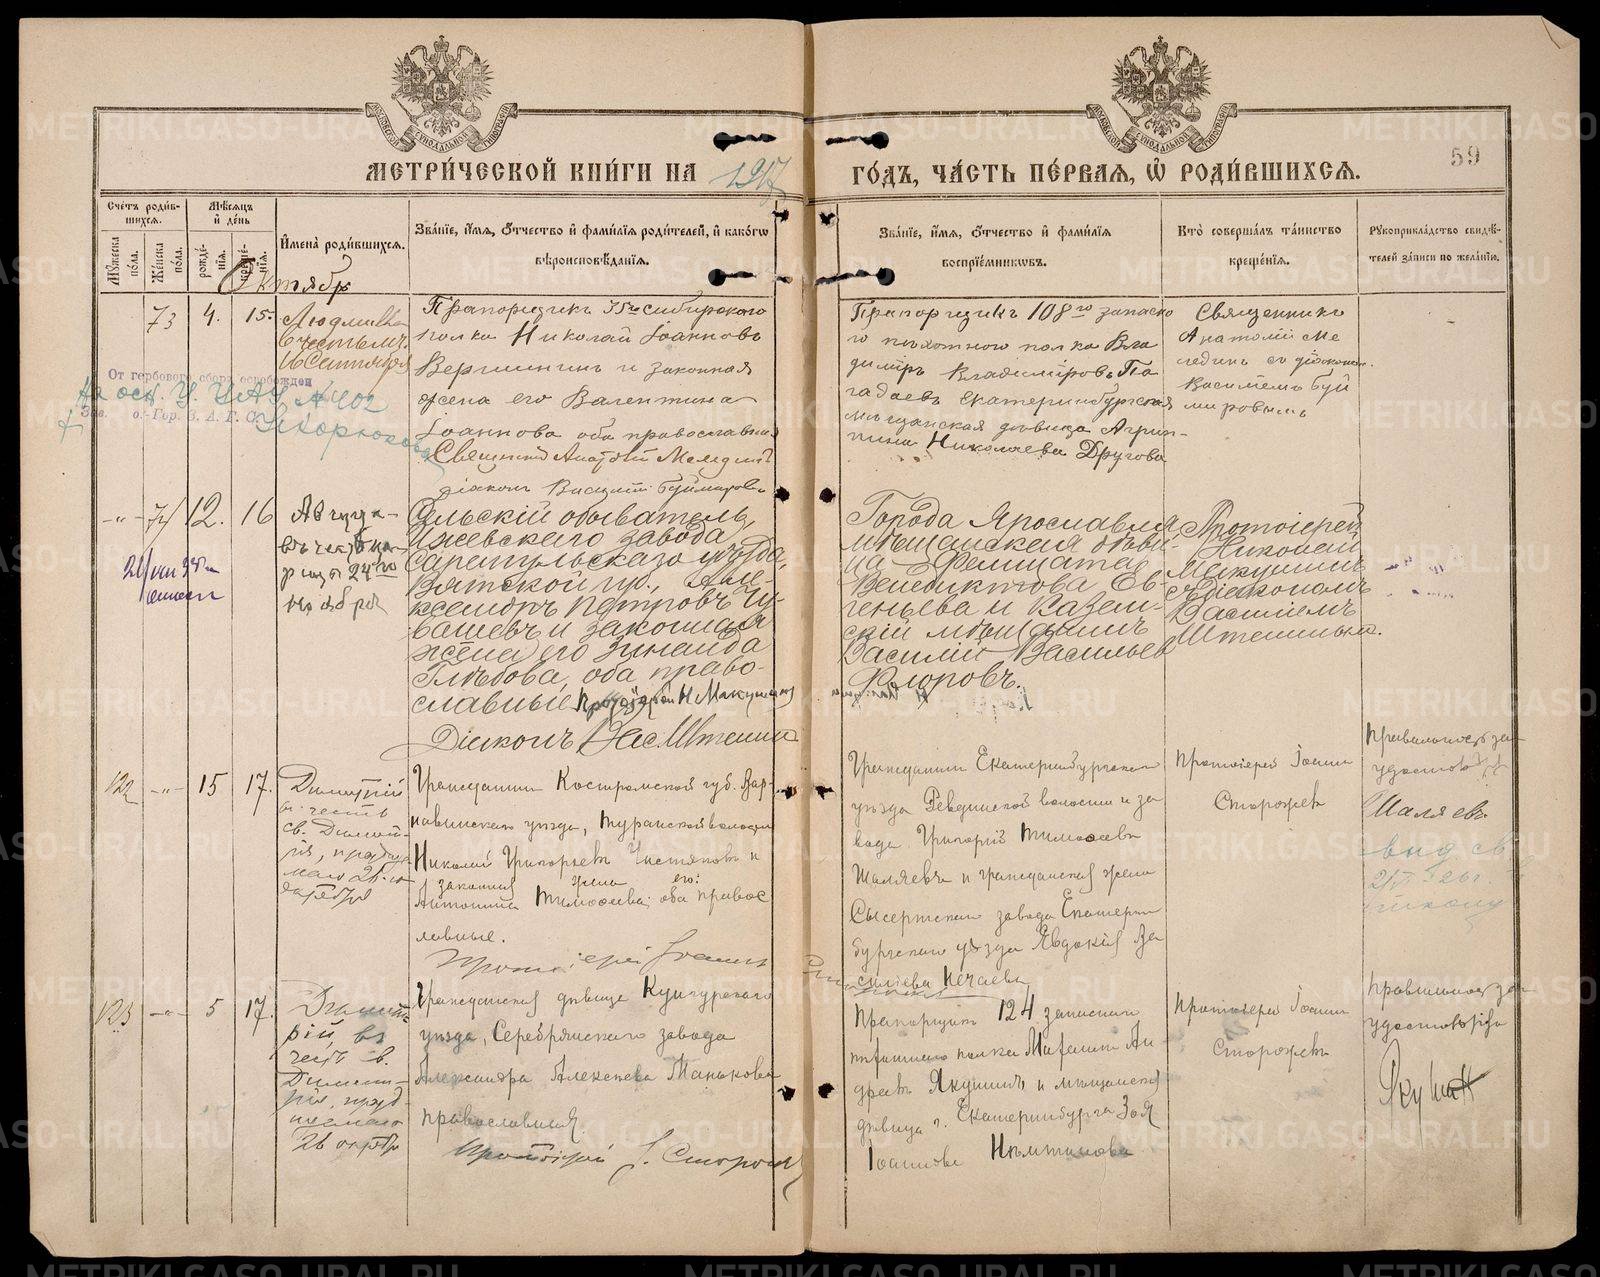 МЕТРИ́ЧЕСКОЙ КНИ́ГИ НА 1917
ГО́ДЪ, ЧА́СТЬ ПЕ́РВАЯ, Ѡ҆ РОДИ́ВШИХСѦ.
59
Сче́тъ роди́в-
шихся.
Мꙋ́жеска по́ла.
Же́нска по́ла.
Мѣ́сяцъ и де́нь
рожде́-нія.
креще́-нія.
Имена̀ роди́вшихся.
Зва́ніе, и́мя, ѻ҆́тчество и фами́лія роди́телей, и како́гѡ
вѣроисповѣ́данія.
Зва́ніе, и́мя, ѻ҆́тчество и фами́лія
воспріе́мникѡвъ.
Кто̀ соверша́лъ та́инство
креще́нія.
Рꙋкоприкла́дство свидѣ́-
телей за́писи по жела́нію.
Октябр
73 4. 15.
Людмила
в честь м.
16 Сентября
От гербового сбора освобожден
На осн. У. У № 402
Зав. о. Гор. З. А. Г. С.
Прапорщикъ 35го сибирского
полка Николай Іоанновъ
Вершининъ и законная
жена его Валентина
Іоаннова оба православные
Священникъ Анатолій Мелединъ
діаконъ Василій Буймировъ
Прапорщикъ 108го запасно
го пѣхотнаго полка Вла
диміръ Владиміровъ По
гадаевъ Екатеринбургская
мѣщанская дѣвица Агрип-
пина Николаева Другова
Священникъ
Анатолій Ме
лединъ съ діакон.
Василіемъ Буй
мировымъ
-"- 74 12. 16
Августа
24го
ноября
Сельскій обыватель,
Ижевскаго завода
Сарапульскаго уѣзда,
Вятской гу., Але-
ксандръ Петровъ Чу-
вашевъ и законная
жена его Зинаида
Глѣбова, оба право-
славные Протоіерей Н Макушинъ
Діаконъ Вас. Штенинъ
Города Ярославля
мѣщанская дѣви
ца Фелицата
Венедиктова Ев-
геньева и Казан-
скій мѣщанинъ
Василій Васильев
Флоровъ.
Протоіерей
Николай
Макушинъ
съ діакономъ
Василіемъ
Штенинымъ.
122 -"- 15 17.
Димитрій
в честь
св. Димит-
рія, праздну
маго 26-го
октября
Гражданинъ Костромской губ. Вар-
навинскаго уѣзда, Туранской волости
Николай Григорьевъ Чистяковъ и
законная жена его:
Антонина Тимофеева; оба правос
лавные.
Протоіерей Іоаннъ
Гражданинъ Екатеринбургскаго
уѣзда Ревдинской волости и за
вода Григорій Тимофеевъ
Шаляевъ и гражданская жена
Сысертскаго завода Екатерин
бургскаго уѣзда Евдокія Ва
силіева Нечаева
Протоіерей Іоаннъ
Сторожевъ
Правильность за-
Шаляевъ
123 -"- 5 17.
Димит
рій, въ
честь св.
Димит-
рія, празд-
нуемаго
26 октября
Гражданская дѣвица Кунгурскаго
уѣзда, Серебрянскаго завода
Александра Алексѣева Манькова
православная.
Протоіерей І. Сторожевъ
Прапорщикъ 124 запаснаго
пѣхотнаго полка Михаилъ Ан-
дреевъ Якушинъ и мѣщанская
дѣвица г. Екатеринбурга Зоя
Іоаннова
Протоіерей Іоаннъ
Сторожевъ
Правильность за-
удостовѣряю
Якушин